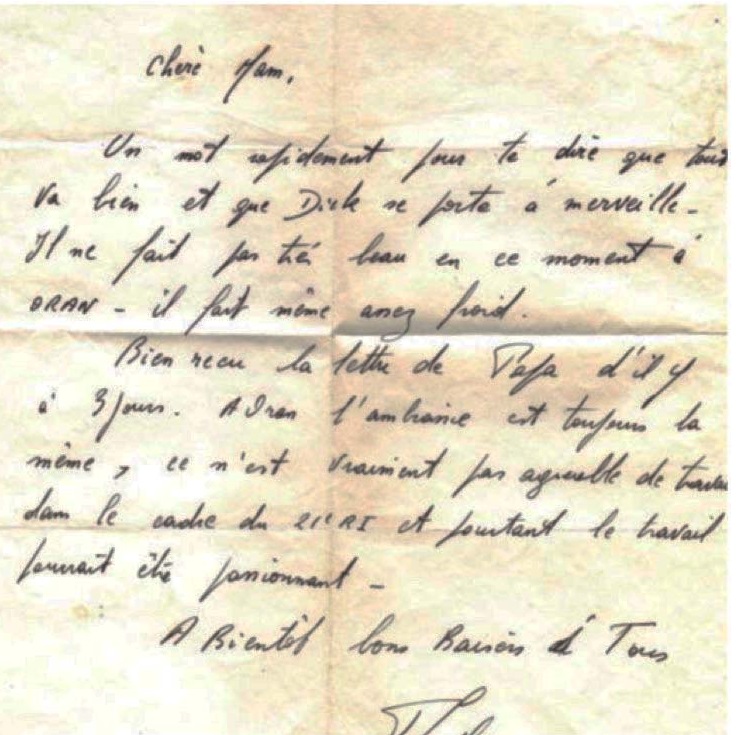 Chère Mam,
Un mot rapidement pour te dire que tout
va bien et que Dick se porte à merveille -
Il ne fait pas très beau en ce moment à
ORAN - il fait même assez froid.
Bien recu la lettre de Papa d'il y
à 3 jours. A Oran l'ambiance est toujours la
même, ce n'est vraiment pas agreable de
dans le cadre du 21e RI et pourtant le travail
pourrait être passionnant -
A Bientôt bons Baisers à Tous